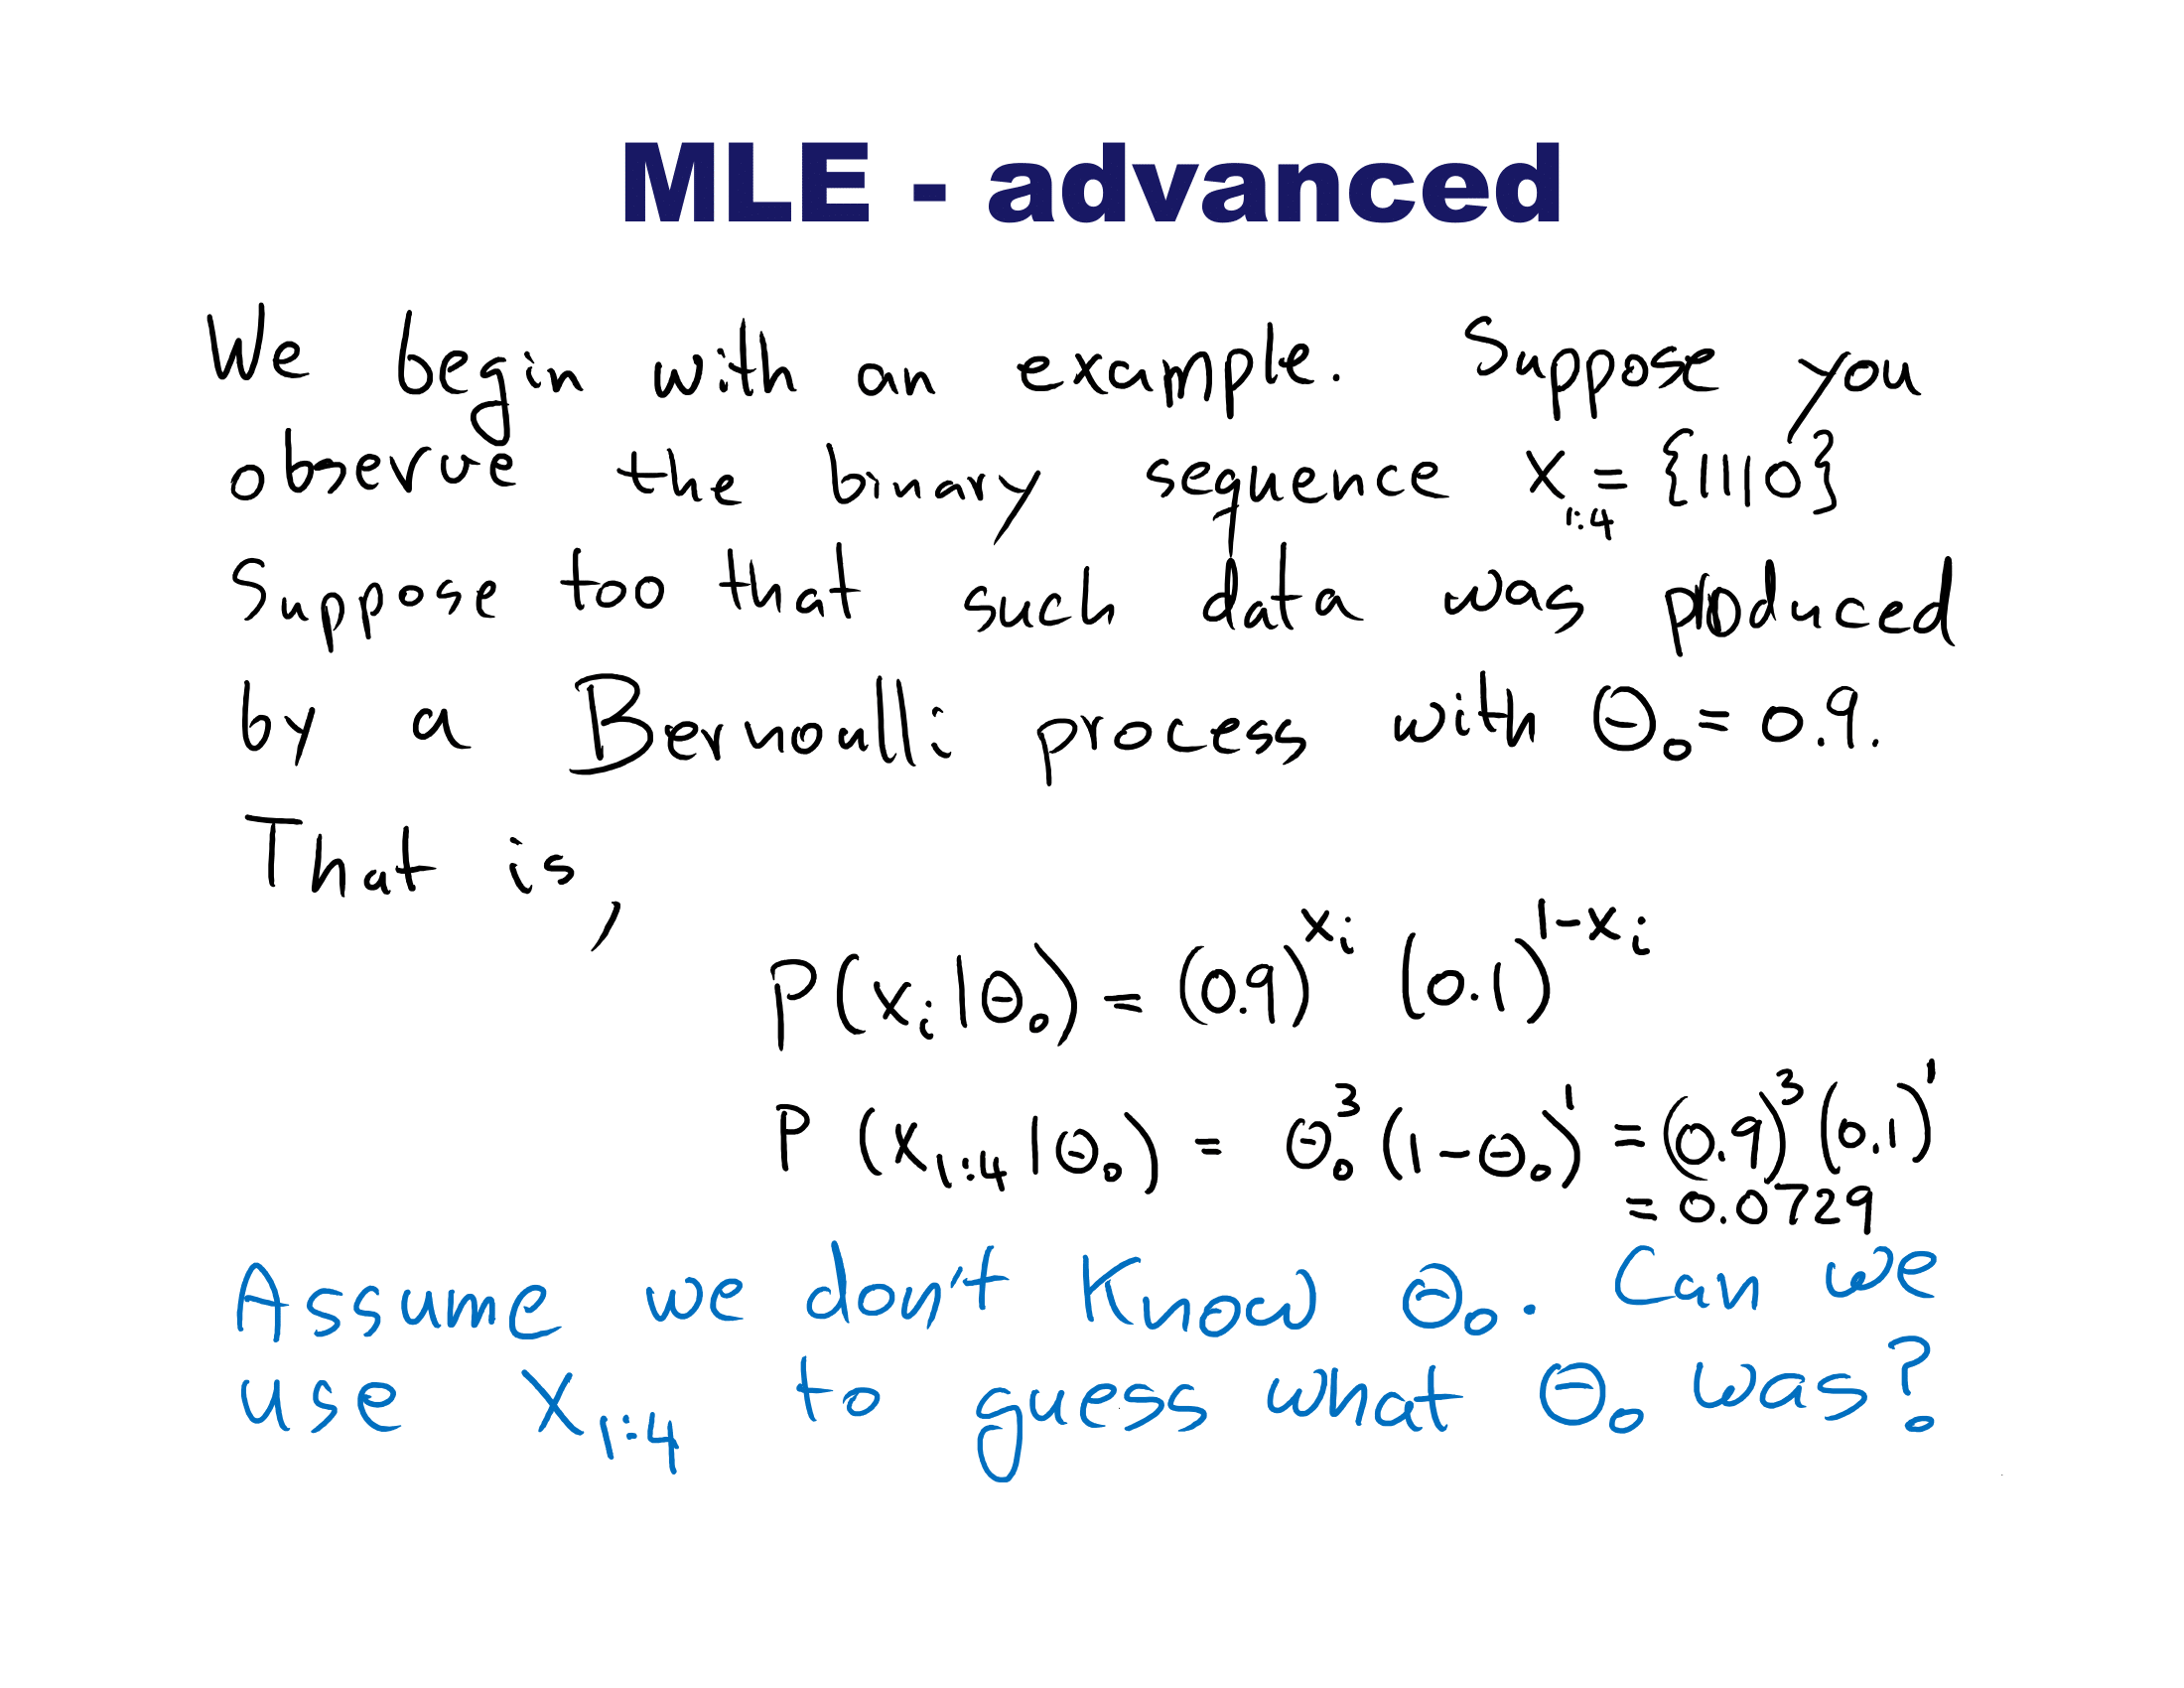 MLE - advanced
We begin with an example. Suppose you
observe the binary sequence X₁:₄ = {1110}
Suppose too that such data was produced
by a Bernoulli process with Θ₀ = 0.9.
That is,
P(xᵢ|Θ₀) = (0.9)^xᵢ (0.1)^1-xᵢ
P (x₁:₄ | Θ₀) = Θ₀³ (1-Θ₀)¹ = (0.9)³ (0.1)¹
= 0.0729
Assume we don't know Θ₀. Can we
use X₁:₄ to guess what Θ₀ was?